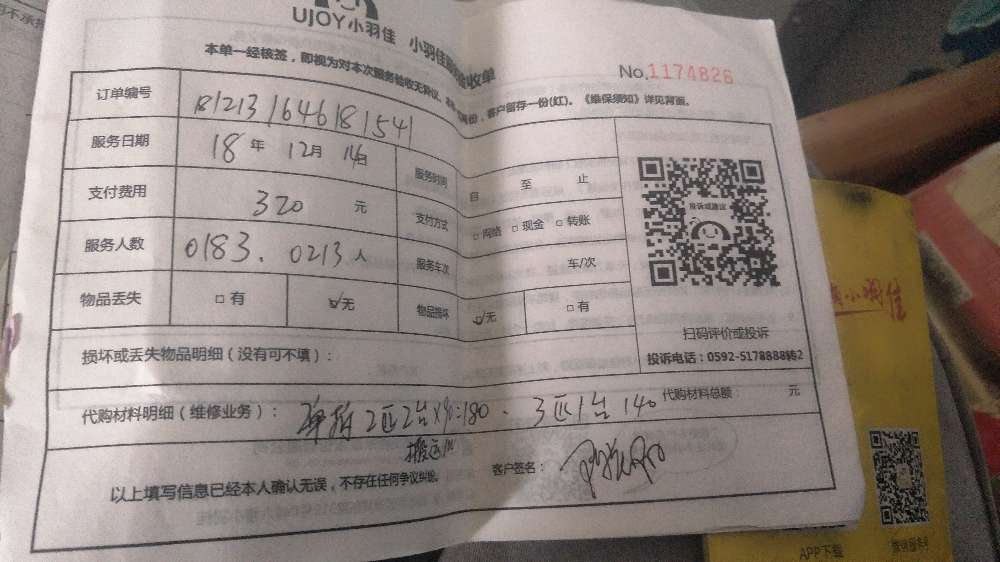 UJOY小羽佳 小羽佳 验收单
本单一经核签，即视为对本次服务验收无异议，
份，客户留存一份(红)。《维保须知》详见背面。
No.1174826
订单编号 181213164618154
服务日期 18年 12月 14日 服务时间 自 至 止
支付费用 320 元 支付方式 □网络 □现金 □转账
服务人数 0183. 0213人 服务车次 车/次
物品丢失 □有 ☑无 物品损坏 ☑无 □有
投诉或建议
扫码评价或投诉
投诉电话：0592-5178888转2
损坏或丢失物品明细（没有可不填）：
代购材料明细（维修业务）： 单拆2匹2台×90:180、3匹1台140 代购材料总额： 元
搬运
以上填写信息已经本人确认无误，不存在任何争议纠纷。 客户签名：
小羽佳
APP下载 微信服务号